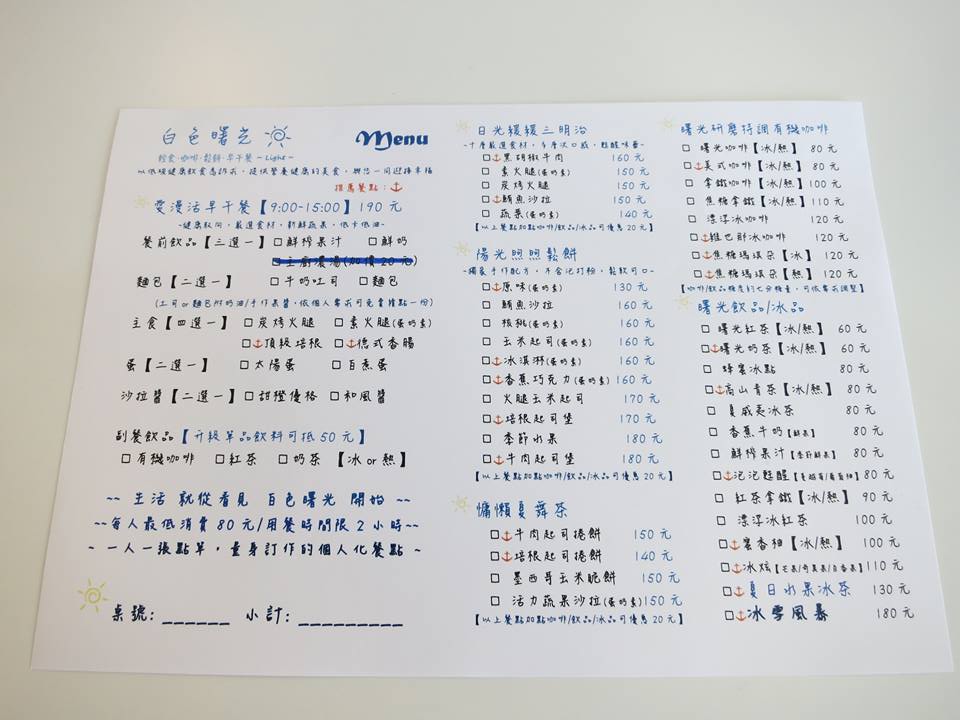 白色曙光
Menu
輕食·咖啡·鬆餅·早午餐 ~Light~
以低碳健康飲食為訴求, 提供營養健康的美食, 與您一同迎接幸福
推薦餐點:
愛漫活早午餐【9:00-15:00】190 元
~健康取向, 嚴選食材, 新鮮蔬果, 低卡低油~
餐前飲品【三選一】 □鮮榨果汁 □鮮奶
□主廚濃湯(加價20元)
麵包【二選一】 □牛奶吐司 □麵包
(土司or麵包附奶油/手作果醬, 依個人需求可免費續點一份)
主食【四選一】 □炭烤火腿 □素火腿(蛋奶素)
□頂級培根 □德式香腸
蛋【二選一】 □太陽蛋 □百煮蛋
沙拉醬【二選一】 □甜橙優格 □和風醬
副餐飲品【升級單品飲料可抵50元】
□有機咖啡 □紅茶 □奶茶 【冰or熱】
~~ 生活 就從看見 白色曙光 開始 ~~
~~每人最低消費 80 元/用餐時間限 2 小時~~
~ 一人一張點單, 量身訂作的個人化餐點 ~
桌號: ______ 小計: _________
日光緩緩三明治
~十層嚴選食材, 多層次口感, 甦醒味蕾~
□黑胡椒牛肉 160 元
□ 素火腿(蛋奶素) 150 元
□ 炭烤火腿 150 元
□鮪魚沙拉 150 元
□ 蔬果(蛋奶素) 140 元
【以上餐點加點咖啡/飲品/冰品可優惠20元】
陽光煦煦鬆餅
~獨家手作配方, 不含泡打粉, 鬆軟可口~
□原味(蛋奶素) 130 元
□ 鮪魚沙拉 160 元
□ 核桃(蛋奶素) 160 元
□ 玉米起司(蛋奶素) 160 元
□冰淇淋(蛋奶素) 160 元
□香蕉巧克力(蛋奶素) 160 元
□ 火腿玉米起司 170 元
□培根起司堡 170 元
□ 季節水果 180 元
□牛肉起司堡 180 元
【以上餐點加點咖啡/飲品/冰品可優惠20元】
慵懶夏舞茶
□牛肉起司捲餅 150 元
□培根起司捲餅 140 元
□ 墨西哥玉米脆餅 150 元
□ 活力蔬果沙拉(蛋奶素)150 元
【以上餐點加點咖啡/飲品/冰品可優惠20元】
曙光研磨特調有機咖啡
□ 曙光咖啡【冰/熱】 80 元
□美式咖啡【冰/熱】 80 元
□ 拿鐵咖啡【冰/熱】100 元
□ 焦糖拿鐵【冰/熱】110 元
□ 漂浮冰咖啡 120 元
□維也那冰咖啡 120 元
□焦糖瑪琪朵【冰】 120 元
□焦糖瑪琪朵【熱】 120 元
【咖啡/飲品糖度約七分糖量, 可依需求調整】
曙光飲品/冰品
□ 曙光紅茶【冰/熱】 60 元
□曙光奶茶【冰/熱】 60 元
□ 蜂蜜冰點 80 元
□高山青茶【冰/熱】 80 元
□ 夏威夷冰茶 80 元
□ 香蕉牛奶【鮮果】 80 元
□ 鮮榨果汁【季節鮮果】 80 元
□泡泡甦醒 80 元
□ 紅茶拿鐵【冰/熱】 90 元
□ 漂浮冰紅茶 100 元
□蜜香柚【冰/熱】 100 元
□冰炫【芒果/奇異果/百香果】110 元
□夏日水果冰茶 130 元
□冰雪風暴 180 元